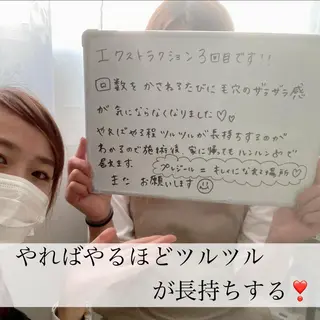 エクストラクション3回目です!!
回数をかさねるたびに毛穴のザラザラ感
が気にならなくなりました♡♡
やればやる程ツルツルが長持ちするのが
わかるので施術後、家に帰ってもルンルンで
居えます。
プレジール=キレイになれる場所♡
また お願いします☺
やればやるほどツルツル
が長持ちする❣